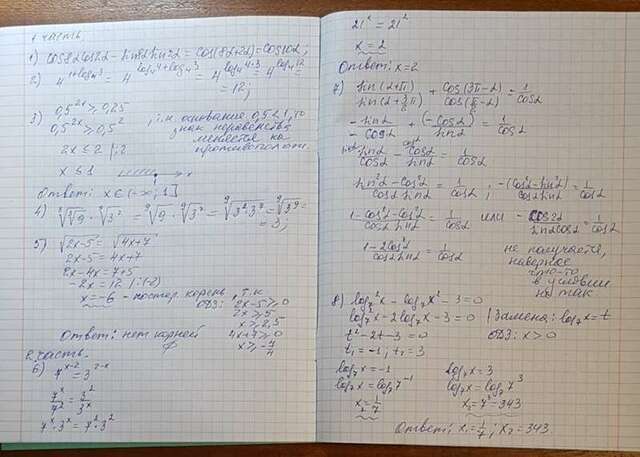 1 часть
1) cos8α cos2α − sin8α sin2α = cos(8α+2α) = cos10α;
2) 4^(1+log₄3) = 4^(log₄4+log₄3) = 4^(log₄4·3) = 4^(log₄12) =
= 12;
3) 0,5^(2x) ≥ 0,25
0,5^(2x) ≥ 0,5² , т.к. основание 0,5<1, то
знак неравенства
2x ≤ 2 |:2 меняется на
противополож.
x ≤ 1
Ответ: x ∈ (−∞; 1]
5) √(2x−5) = √(4x+7)
2x−5 = 4x+7
2x−4x = 7+5
−2x = 12 |:(−2)
x = −6 – постор. корень, т.к.
ОДЗ: 2x−5 ≥ 0
2x ≥ 5
x ≥ 2,5
4x+7 ≥ 0
x ≥ −7/4
Ответ: нет корней
∅
2 часть.
6) 7^(x−2) = 3^(2−x)
7^x/7² = 3²/3^x
7^x · 3^x = 7² · 3²
21^x = 21²
x = 2
Ответ: x = 2
7) sin(α+π)/sin(α+3/2π) + cos(3π−α)/cos(π/2−α) = 1/cosα
−sinα/−cosα + (−cosα)/sinα = 1/cosα
sinα/cosα − cosα/sinα = 1/cosα
(sin²α−cos²α)/(cosα sinα) = 1/cosα ; −(cos²α−sin²α)/(cosα sinα) = 1/cosα
(1−cos²α−cos²α)/(cosα sinα) = 1/cosα или −cos2α/(sinα cosα) = 1/cosα
(1−2cos²α)/(cosα sinα) = 1/cosα не получается,
наверное
что-то
в условии
не так
8) log₇²x − log₇x² − 3 = 0
log₇²x − 2log₇x − 3 = 0 | Замена: log₇x = t
t² − 2t − 3 = 0 ОДЗ: x > 0
t₁ = −1; t₂ = 3
log₇x = −1 log₇x = 3
log₇x = log₇7⁻¹ log₇x = log₇7³
x = 1/7 x₂ = 7³ = 343
Ответ: x₁ = 1/7; x₂ = 343.